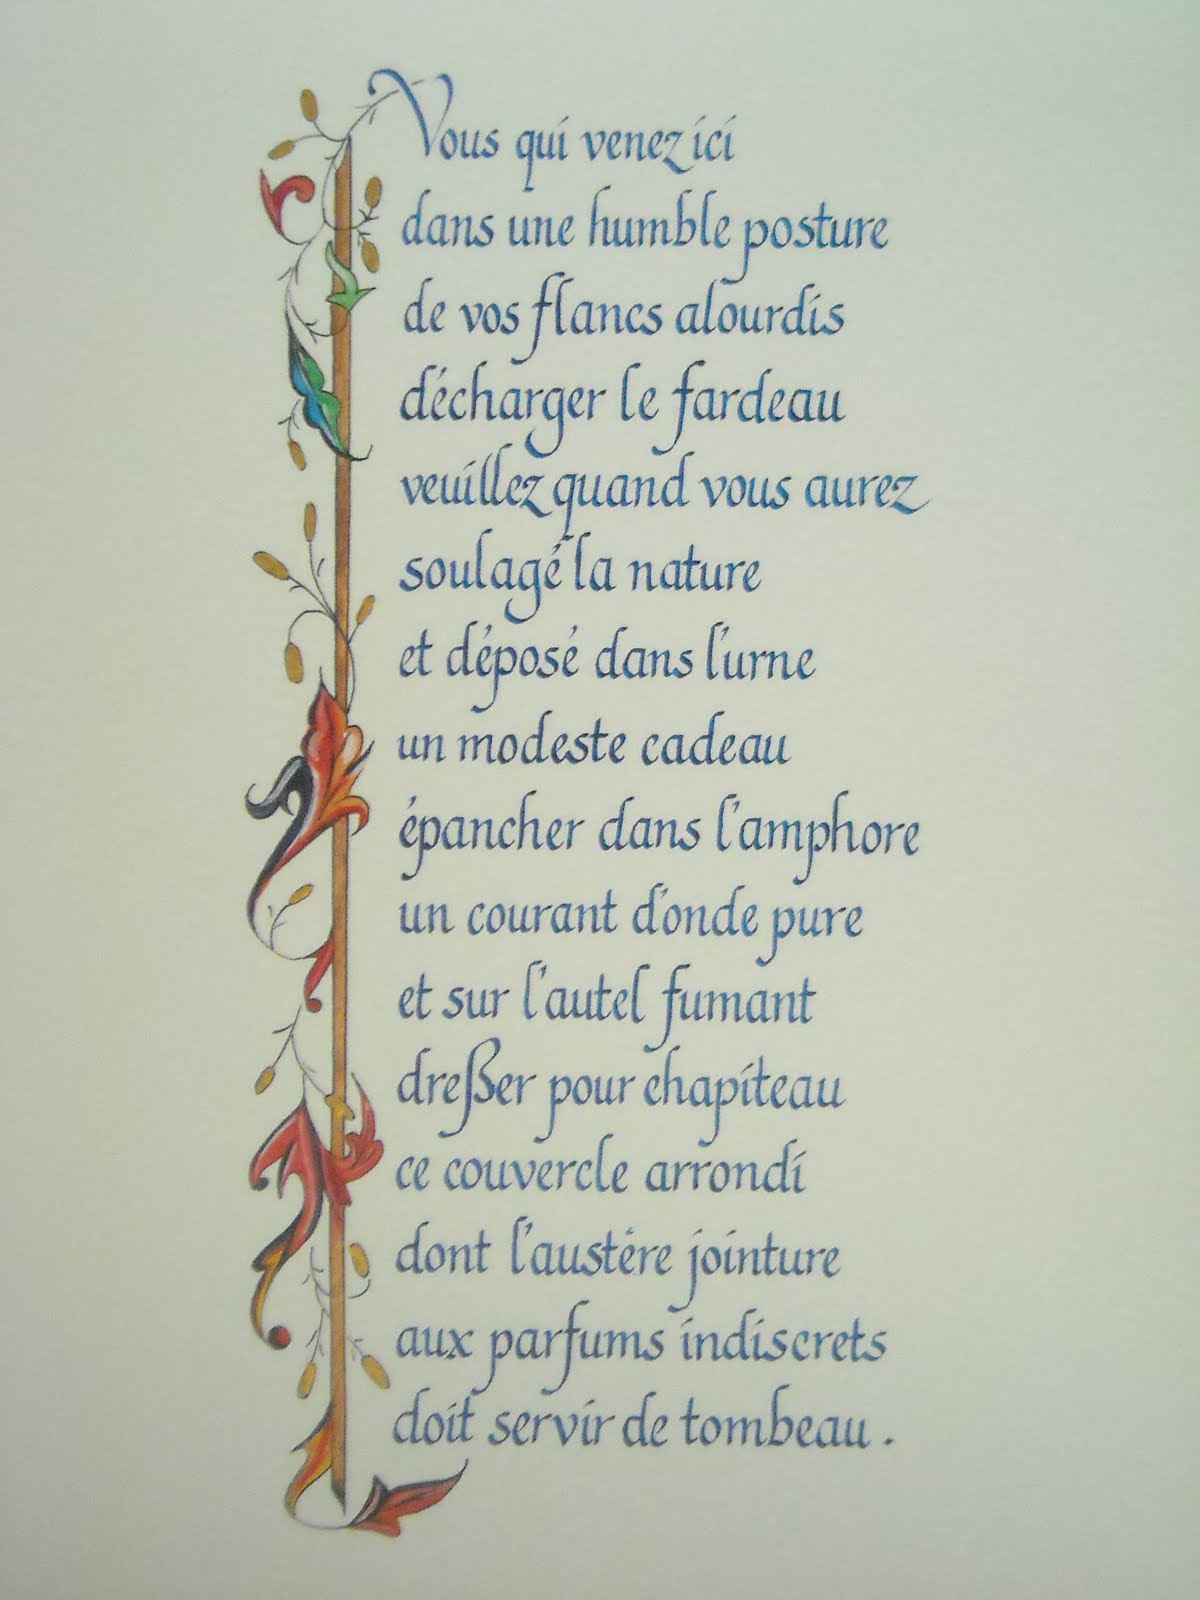 Vous qui venez ici
dans une humble posture
de vos flancs alourdis
décharger le fardeau
veuillez quand vous aurez
soulagé la nature
et déposé dans l'urne
un modeste cadeau
épancher dans l'amphore
un courant d'onde pure
et sur l'autel fumant
dreßer pour chapiteau
ce couvercle arrondi
dont l'austére jointure
aux parfums indiscrets
doit servir de tombeau.